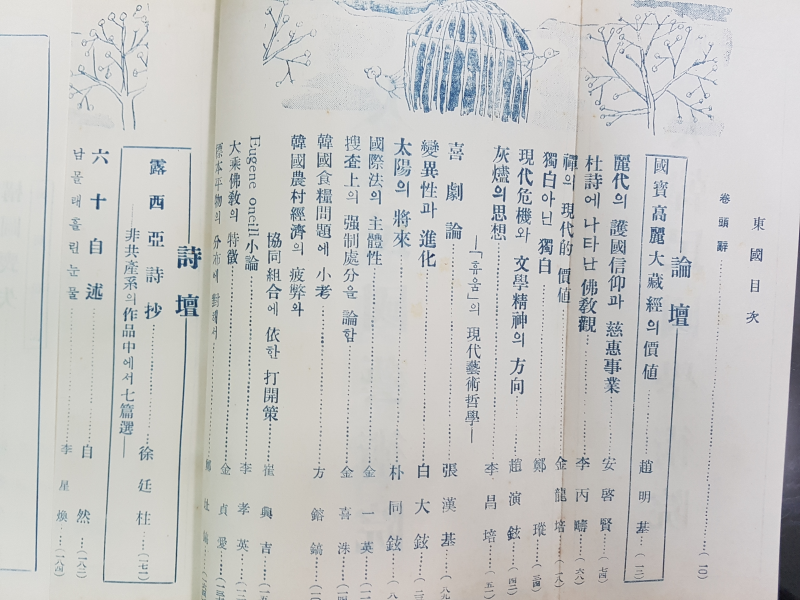 東國目次
卷頭辭 (一〇)
論壇
國寶高麗大藏經의價値 趙明基 (一二)
麗代의 護國信仰과 慈惠事業 安啓賢 (七四)
杜詩에 나타난 佛敎觀 李丙疇 (六八)
禪의 現代的 價値 金龍培 (一八)
獨白아닌 獨白 鄭瑽 (三四)
現代危機와 文學精神의 方向 趙演鉉 (四二)
灰燼의 思想 李昌培 (五一)
喜劇論 張漢基
—「휴움」의 現代藝術哲學—
變異性과 進化 白大鉉
太陽의 將來 朴同鉉
國際法의 主體性 金一英
搜査上의 强制處分을 論함 金喜洙
韓國食糧問題에 小考 方鎔鎬
韓國農村經濟의 疲弊와
協同組合에 依한 打開策 崔興吉
Eugene oneill小論 李孝英
大乘佛敎의 特徵 金貞愛
標本平物의 分布에
詩壇
露西亞詩抄 徐廷柱 (一七一)
—非共產系의作品中에서七篇選—
六十自述 自然 (一八二)
남몰래흘린눈물 李星煥 (一八四)